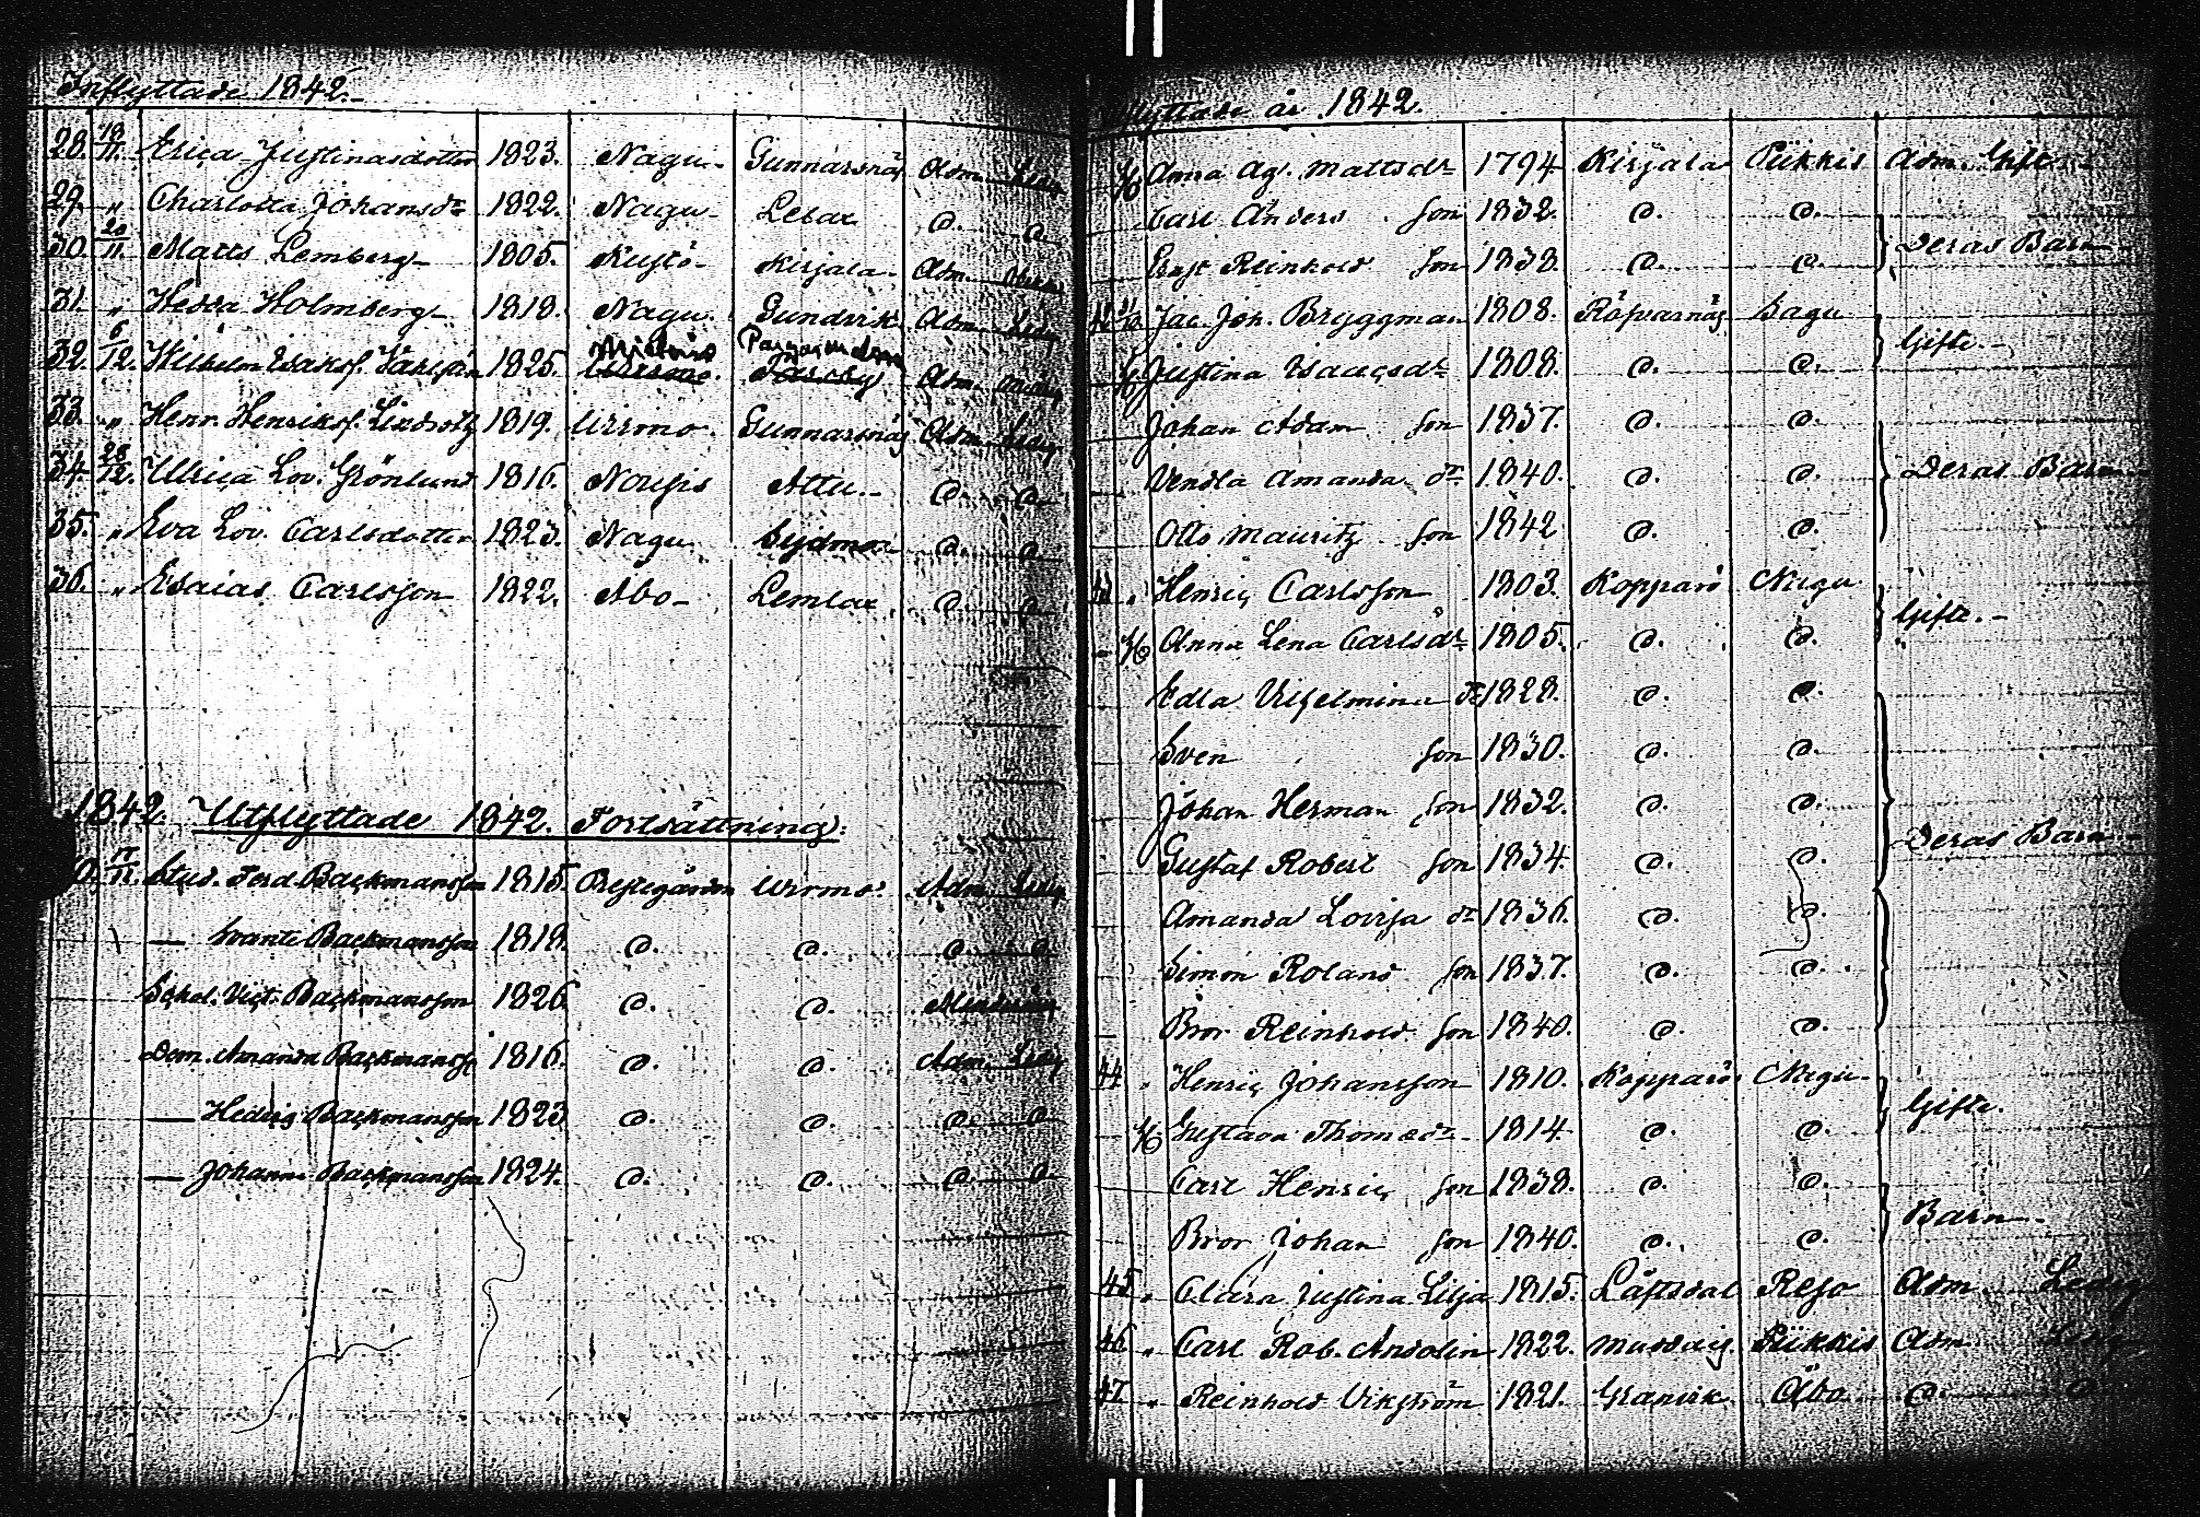 Inflyttade 1842.
28. 18/11. Erica Justinasdotter 1823. Nagu Gunnarsnäs Adm. Ledig
29. " Charlotta Johansdr 1822. Nagu Lebax d. d.
30. 20/11. Matts Lemberg 1805. Kustö Kirjala Adm.
31. " Hedda Holmberg 1818. Nagu. Gundvik Adm. Ledig
32. 6/12. Wilhelm Isaksf. 1825. Adm.
33. " Henr. Henriksf. 1819. Urimo. Gunnarsnäs Adm. Ledig
34. 28/12. Ulrica Lov. Grönlund 1816. Attu. d. d.
35. " Eva Lov. Carlsdotter 1823. Nagu d. d.
36. " Esaias Carlsson 1822. Abo Lemlax. d. d.
1842. Utflyttade 1842. Fortsättning.
Stud. Ferd. Backmansson 1815. Prestgården Urimo. Adm. Ledig
— Svante Backmansson 1818. d. d. d. d.
Schol. Vict. Backmansson 1826. d. d.
Dem. Amanda Backmansso 1816. d. d. Adm. Ledig
— Hedvig Backmansson 1823 d. d. d. d.
— Johanna Backmansson 1824. d. d. d. d.
flyttade år 1842.
Anna Ag. Mattsdr 1794 Kirjala Piikkis Adm. Gift
Carl Anders son 1832. d. d.
Deras Barn
Ernst Reinhold son 1838. d. d.
Jac. Joh. Bryggman 1808. Röfvarnäs Sagu
Gifte.
Justina Isaacsdr 1808. d. d.
Johan Adam son 1837. d. d.
Vendla Amanda dr 1840. d. d. Deras Barn
Otto Mauritz son 1842 d. d.
" Henric Carlsson 1803. Kopparö Nagu
Gifte.
Anna Lena Carlsdr 1805. d. d.
Edla Vilhelmina dr 1828. d. d.
Sven son 1830. d. d.
Johan Herman son 1832. d. d.
Deras Barn
Gustaf Robert son 1834. d. d.
Amanda Lovisa dr 1836. d. d.
Simon Roland son 1837. d. d.
Bror Reinhold son 1840. d. d.
44. " Henric Johansson 1810. Kopparö Nagu.
Gifte.
Gustava Thomasdr 1814. d. d.
Carl Henric son 1838. d. d.
Barn
Bror Johan son 1840. d. d.
45. " Clara Justina Lilja 1815. Låftsdal Reso Adm. Ledig
46. " Carl Rob. Andolin 1822. Muddais Piikkis Adm. Ledig
47. " Reinhold Vikström 1821. Granvik Åbo d. d.